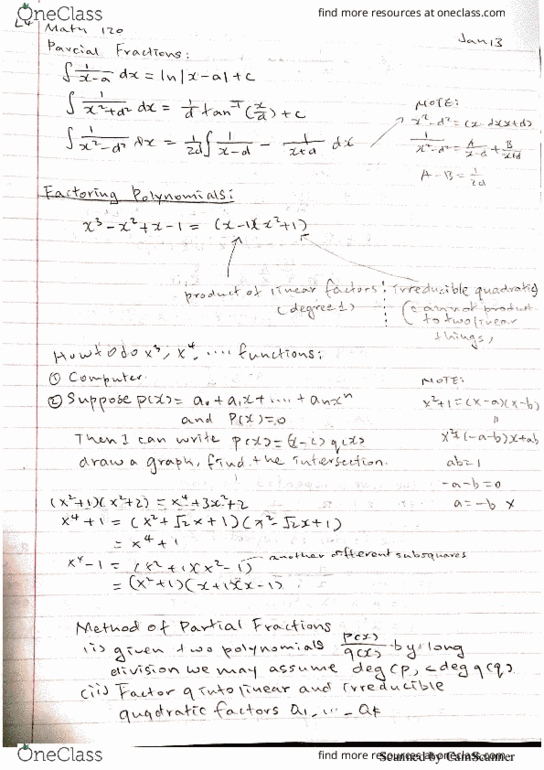 OneClass
find more resources at oneclass.com
L4 Math 120
Jan 13
Parcial Fractions:
∫ 1/(x-a) dx = ln|x-a| + c
∫ 1/(x²+d²) dx = 1/d tan⁻¹(x/d) + c
∫ 1/(x²-d²) dx = 1/2d ∫ 1/(x-d) - 1/(x+d) dx
NOTE:
x²-d² = (x-d)(x+d)
1/(x²-d²) = A/(x-d) + B/(x+d)
A-B = 1/2d
Factoring Polynomials:
x³-x²+x-1 = (x-1)(x²+1)
product of linear factors
(degree 1)
irreducible quadratic
(cannot product
to two linear
things,
How to do x³, x⁴, .... functions:
① Computer
② Suppose p(x) = a₀+a₁x+....+aₙxⁿ
and P(x)=0
Then I can write p(x)=(x-c)q(x)
draw a graph, find the intersection.
NOTE:
x²+1=(x-a)(x-b)
x²+(-a-b)x+ab
ab=1
-a-b=0
a=-b x
(x²+1)(x²+2) = x⁴+3x²+2
x⁴+1 = (x²+√2x+1)(x²-√2x+1)
= x⁴+1
x⁴-1 = (x²+1)(x²-1)
another different subsquares
= (x²+1)(x+1)(x-1)
Method of Partial Fractions
(i) given two polynomials p(x)/q(x) by long
division we may assume deg(p) < deg q(q)
(ii) Factor q into linear and irreducible
quadratic factors a₁, ... aₖ
OneClass
find more resources at oneclass.com
Scanned by CamScanner